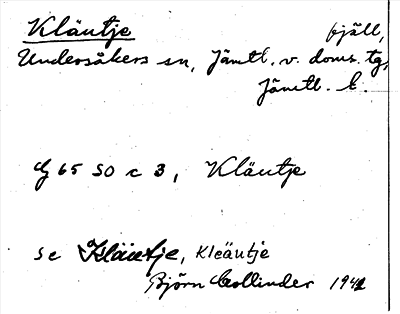 Kläutje fjäll,
Undersåkers sn, Jämtl. v. doms. tg,
Jämtl. l.
G 65 SO c 3, Kläutje
se Kläutje, Kleäutje
Björn Collinder 1942